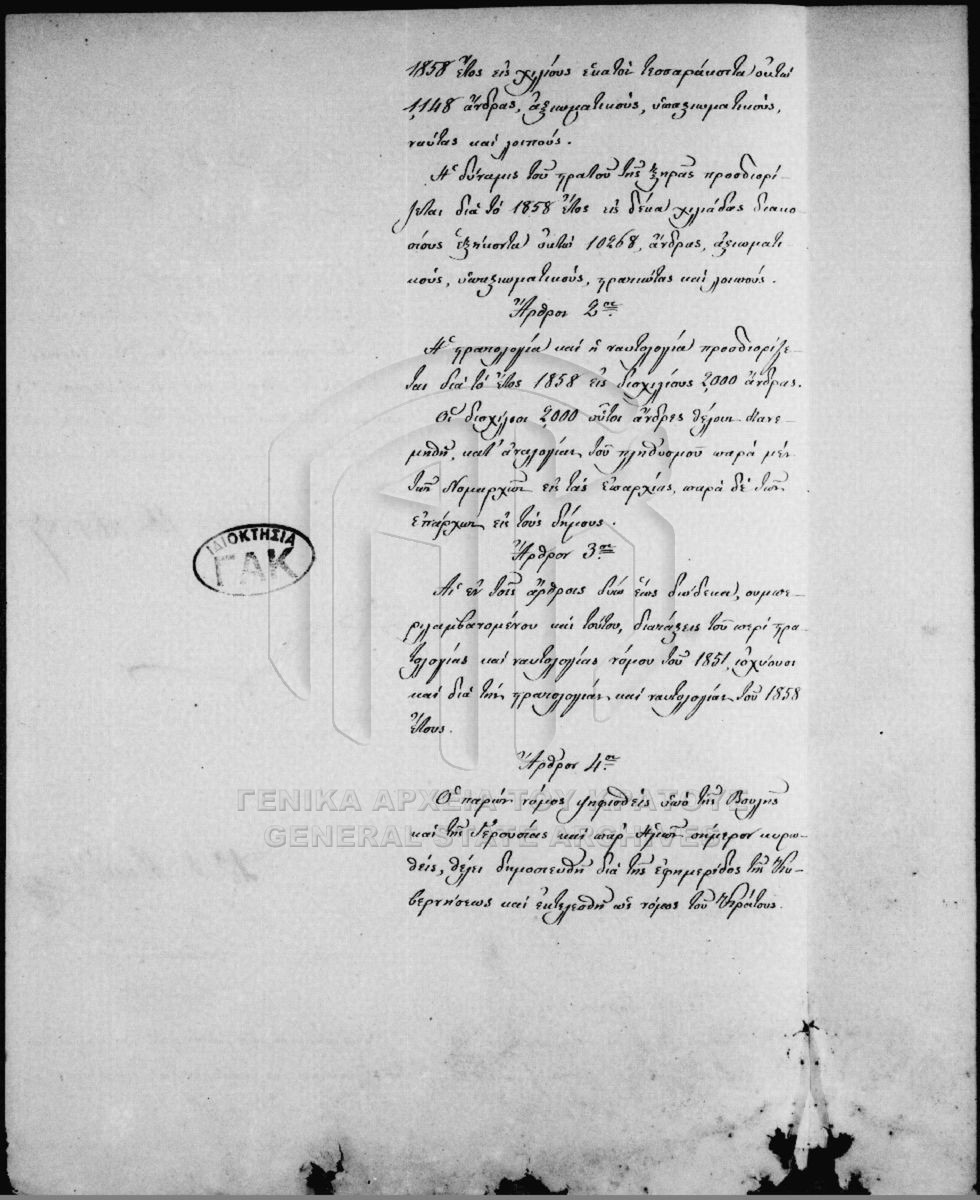 1858 ἔτος εἰς χιλίους ἑκατὸν τεσσαράκοντα ὀκτὼ
1,148 ἄνδρας, ἀξιωματικούς, ὑπαξιωματικούς,
ναύτας καὶ λοιπούς.
Ἡ δύναμις τοῦ στρατοῦ τῆς ξηρᾶς προσδιορί-
ζεται διὰ τὸ 1858 ἔτος εἰς δέκα χιλιάδας διακο-
σίους ἑξήκοντα ὀκτὼ 10268, ἄνδρας, ἀξιωματι-
κούς, ὑπαξιωματικούς, στρατιώτας καὶ λοιπούς.
Ἄρθρον 2ον
Ἡ στρατολογία καὶ ἡ ναυτολογία προσδιορίζε-
ται διὰ τὸ ἔτος 1858 εἰς δισχιλίους 2,000 ἄνδρας.
Οἱ δισχίλιοι 2,000 οὗτοι ἄνδρες θέλουν διανε-
μηθῆ, κατ' ἀναλογίαν τοῦ πληθυσμοῦ παρὰ μὲν
τῶν Νομαρχῶν εἰς τὰς ἐπαρχίας, παρὰ δὲ τῶν
ἐπάρχων εἰς τοὺς δήμους.
Ἄρθρον 3ον
Αἱ ἐν τοῖς ἄρθροις δύω ἕως δώδεκα, συμπε-
ριλαμβανομένου καὶ τούτου, διατάξεις τοῦ περὶ στρα-
τολογίας καὶ ναυτολογίας νόμου τοῦ 1851, ἰσχύουσι
καὶ διὰ τὴν στρατολογίαν καὶ ναυτολογίαν τοῦ 1858
ἔτους.
Ἄρθρον 4ον
Ὁ παρὼν νόμος ψηφισθεὶς ὑπὸ τῆς Βουλῆς
καὶ τῆς Γερουσίας καὶ παρ' Ἡμῶν σήμερον κυρω-
θείς, θέλει δημοσιευθῆ διὰ τῆς ἐφημερίδος τῆς Κυ-
βερνήσεως καὶ ἐκτελεσθῆ ὡς νόμος τοῦ Κράτους.
ΙΔΙΟΚΤΗΣΙΑ
ΓΑΚ
ΓΕΝΙΚΑ ΑΡΧΕΙΑ ΤΟΥ ΚΡΑΤΟΥΣ
GENERAL STATE ARCHIVES